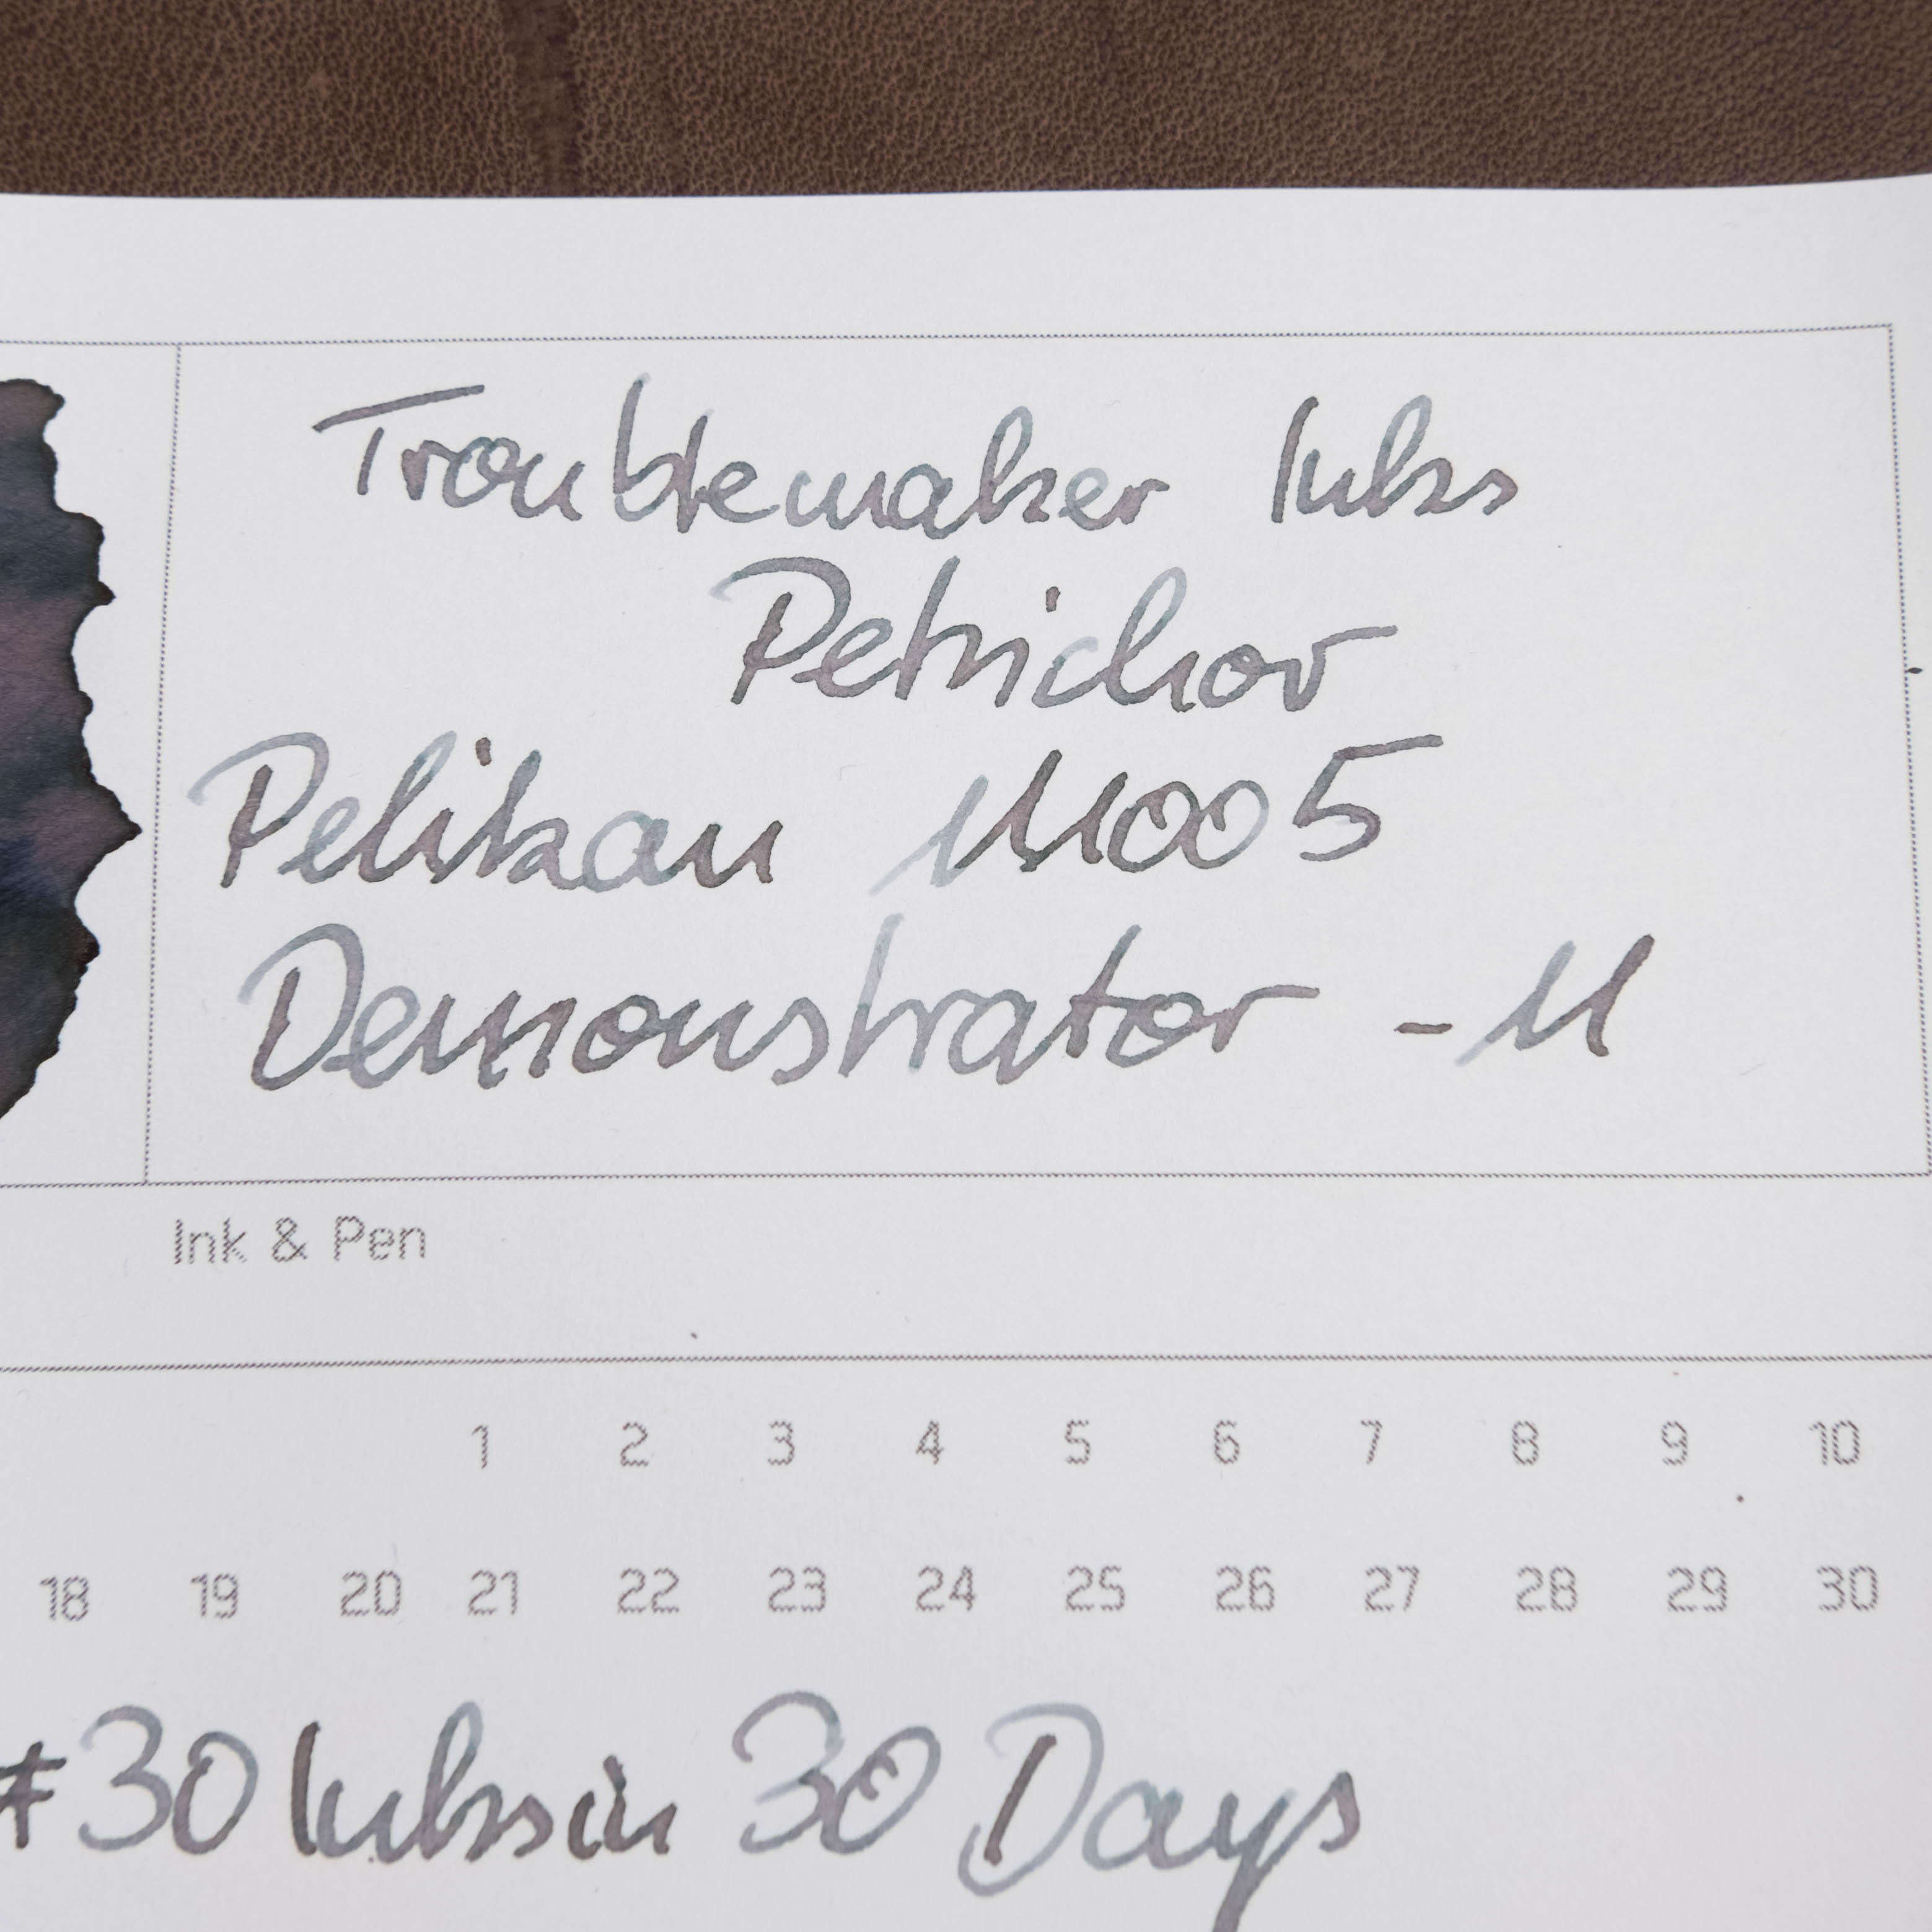 Troublemaker Inks
Petrichor
Pelikan M1005
Demonstrator - M
Ink & Pen
1 2 3 4 5 6 7 8 9 10
18 19 20 21 22 23 24 25 26 27 28 29 30
#30 Inks in 30 Days